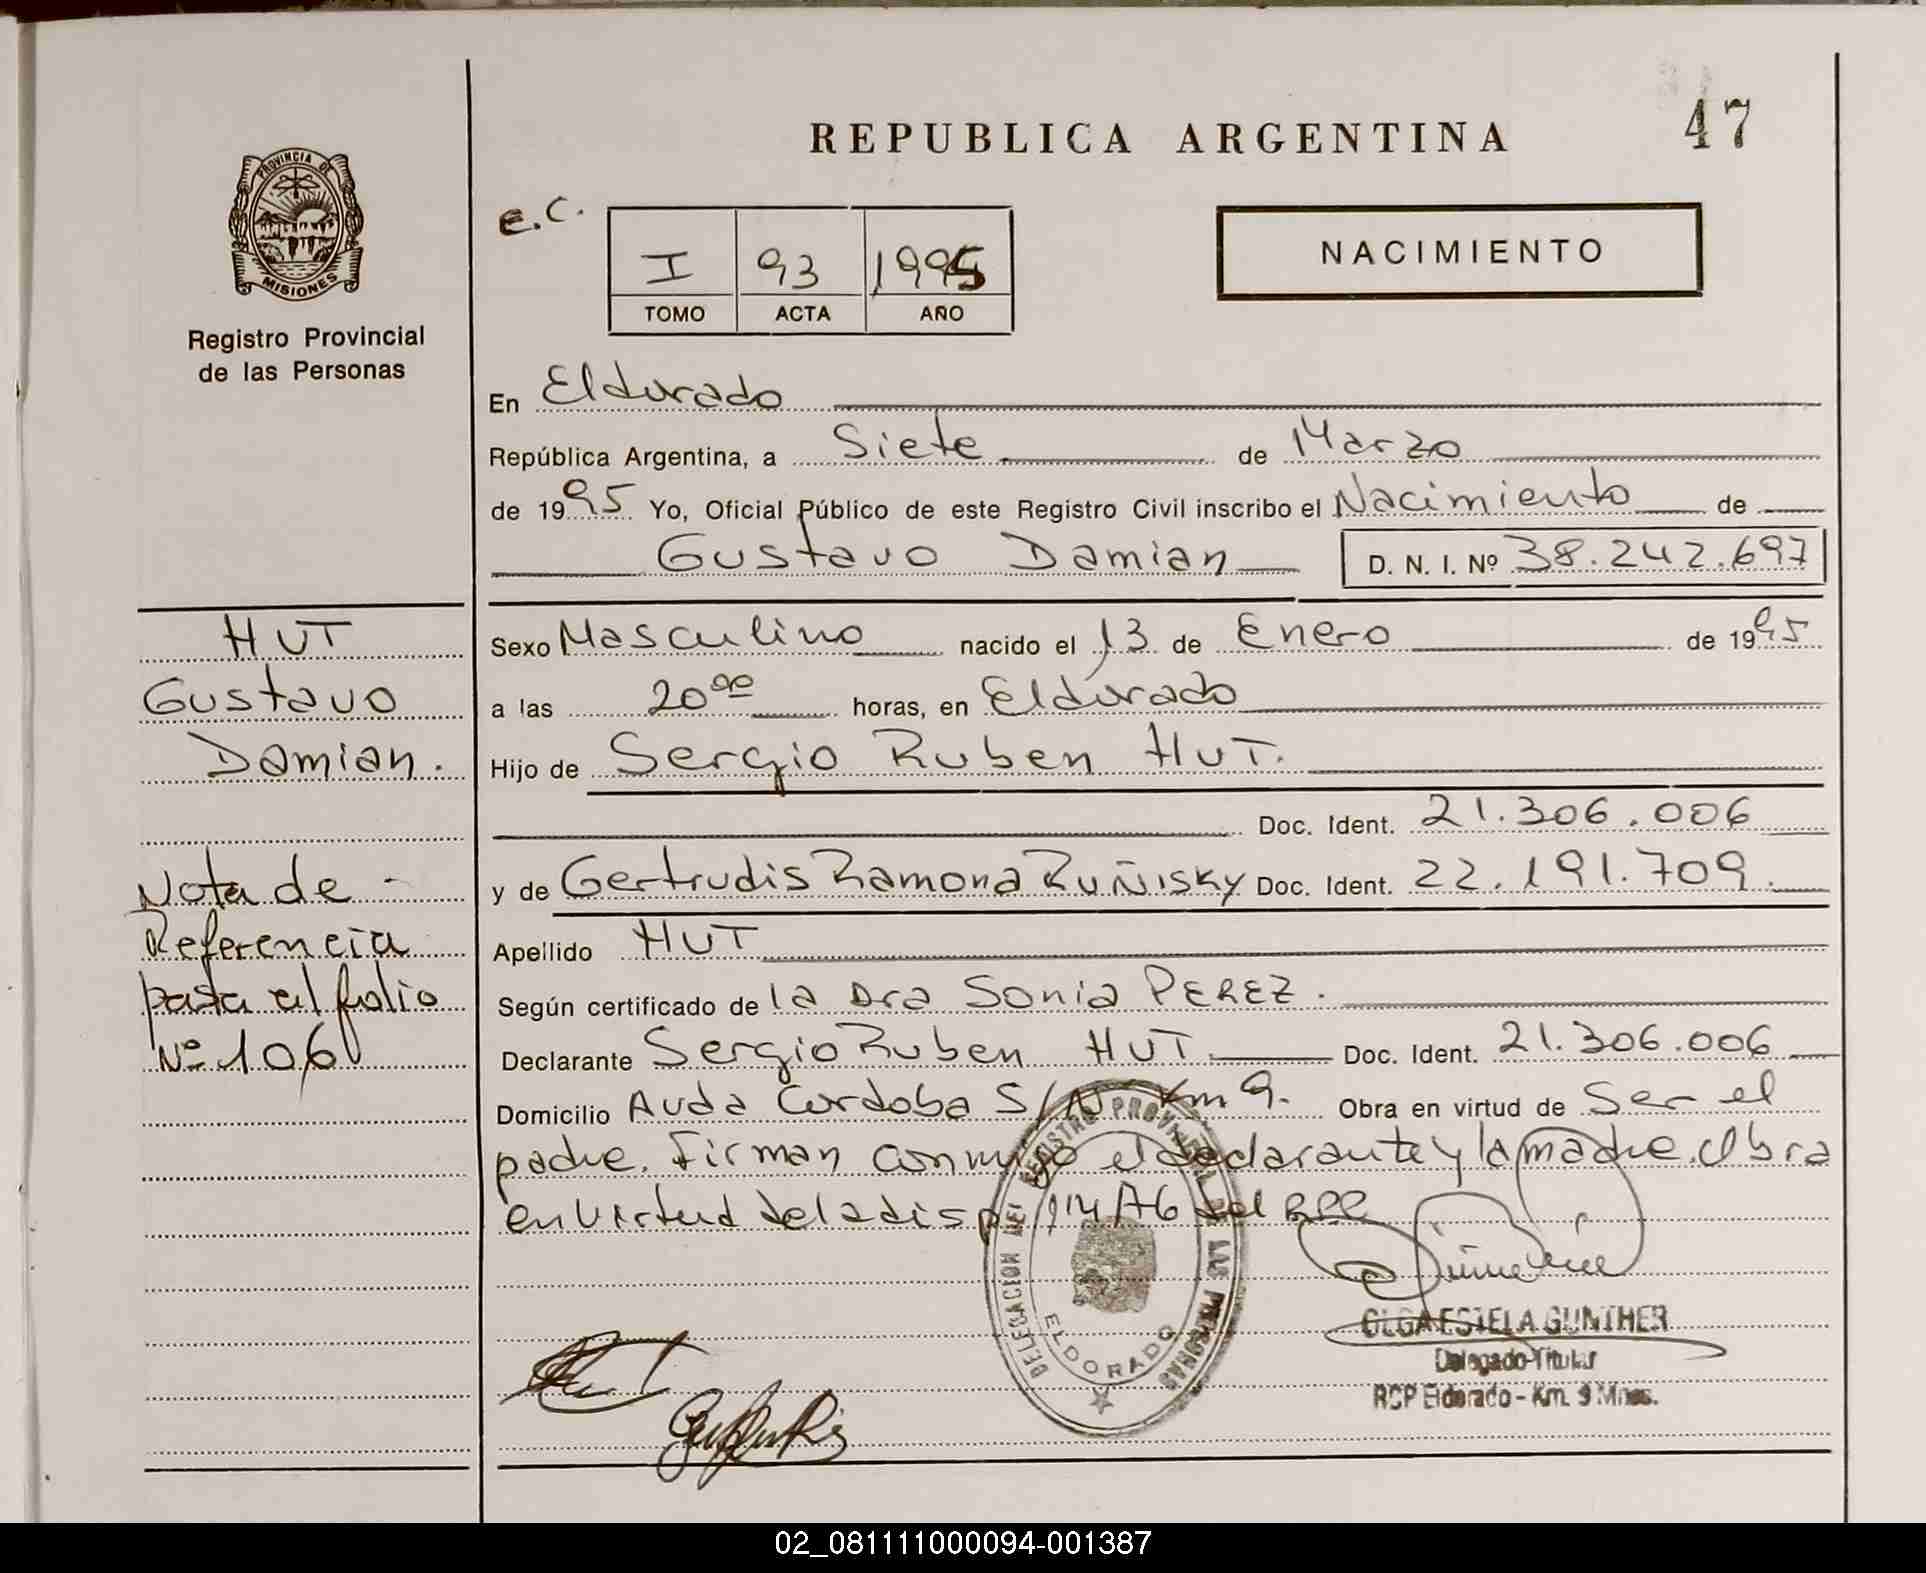 REPUBLICA ARGENTINA
47
PROVINCIA DE
MISIONES
Registro Provincial
de las Personas
E.C.
I 93 1995
TOMO ACTA AÑO
NACIMIENTO
En Eldorado
República Argentina, a Siete de Marzo
de 1995 Yo, Oficial Público de este Registro Civil inscribo el Nacimiento de
Gustavo Damian D. N. I. Nº 38.242.697
HUT
Gustavo
Damian.
Nota de -
Referencia
pasa al folio
Nº 106
Sexo Masculino nacido el 13 de Enero de 1995
a las 20 00 horas, en Eldorado
Hijo de Sergio Ruben HUT.
Doc. Ident. 21.306.006
y de Gertrudis Ramona Ruñisky Doc. Ident. 22.191.709.
Apellido HUT
Según certificado de la Dra Sonia PEREZ.
Declarante Sergio Ruben HUT Doc. Ident. 21.306.006
Domicilio Avda Cordoba S/N Km 9. Obra en virtud de Ser el
padre. Firman conmigo el declarante y la madre. Obra
en virtud de la disp del RPP
DELEGACION DEL REGISTRO PROVINCIAL DE LAS PERSONAS
ELDORADO
OLGA ESTELA GUNTHER
Delegado Titular
RCP Eldorado - Km. 9 Mnes.
02_081111000094-001387